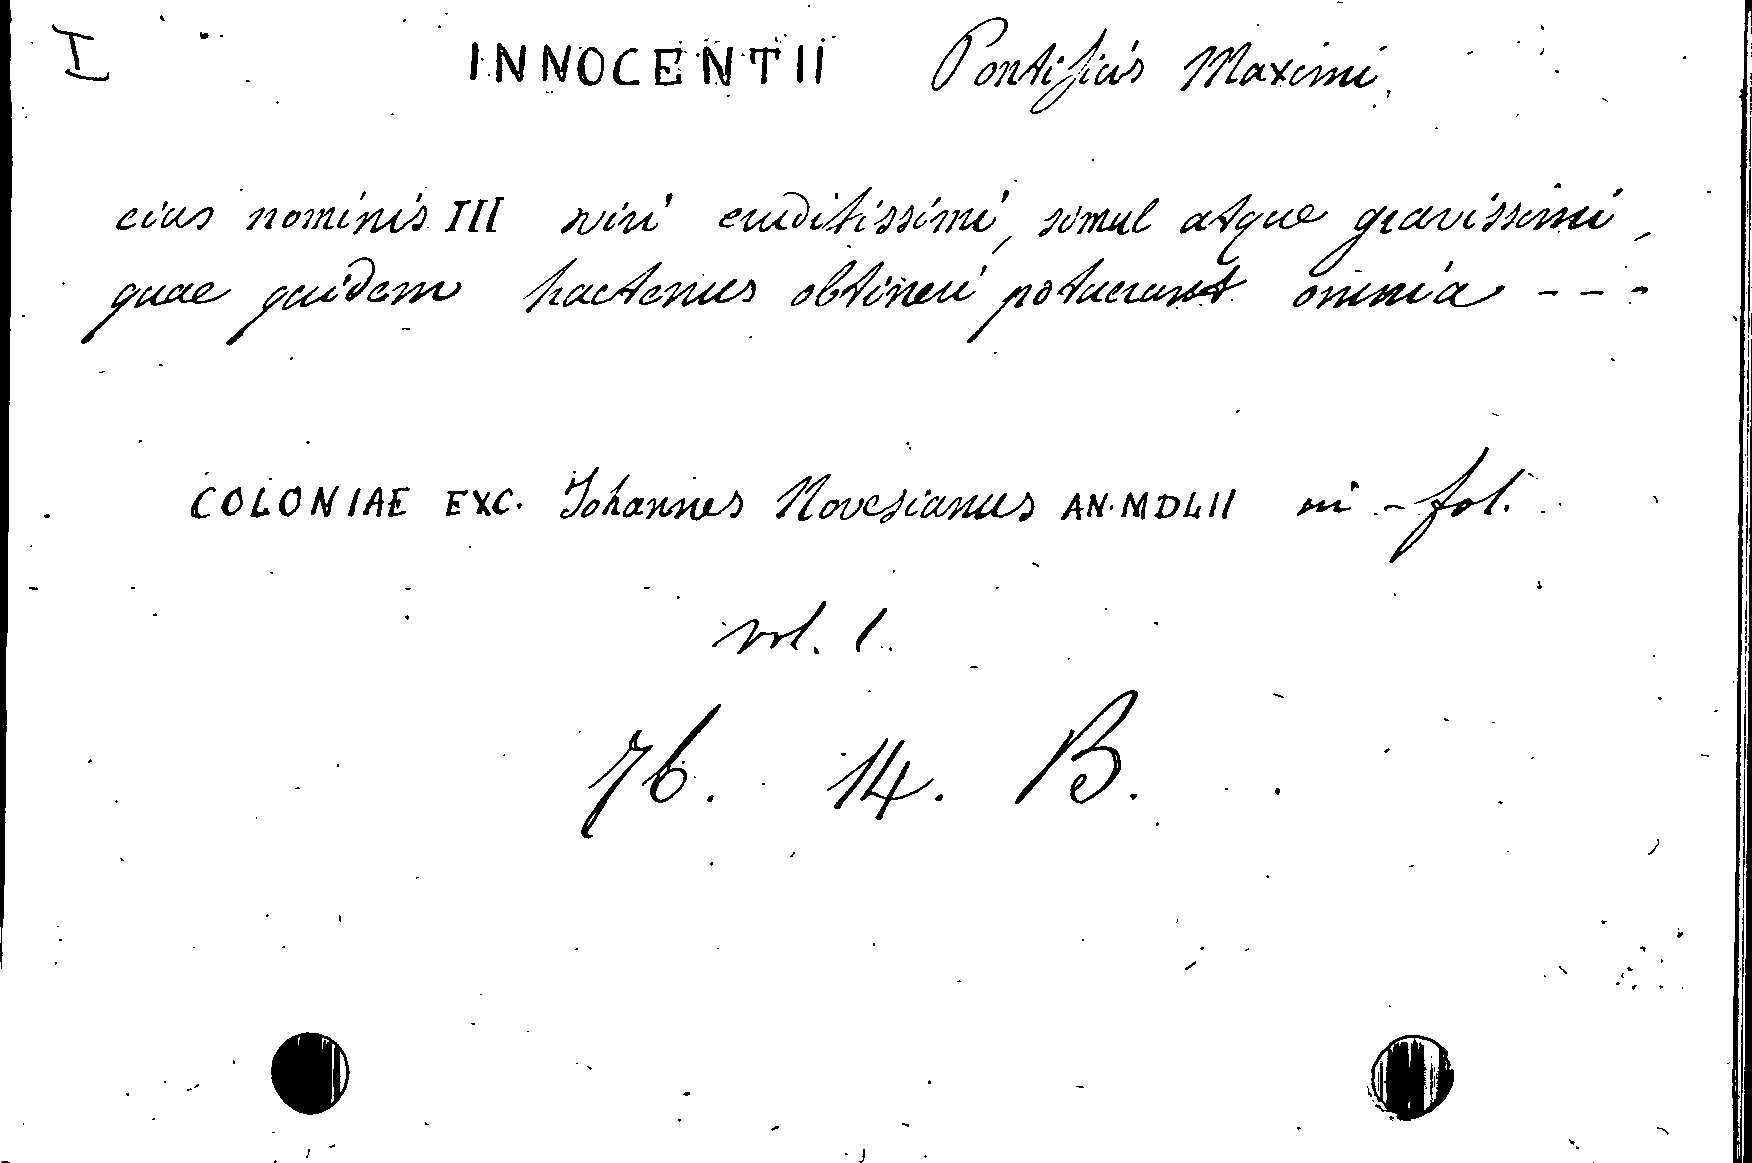 I INNOCENTII Pontificis Maximi,
eius nominis III viri eruditissimi, simul atque gravissimi,
quae quidem hactenus obtineri potuerunt omnia - - -
COLONIAE EXC. Johannes Novesianus AN. MDLII in-fol.
vol. 1.
76. 14. B.